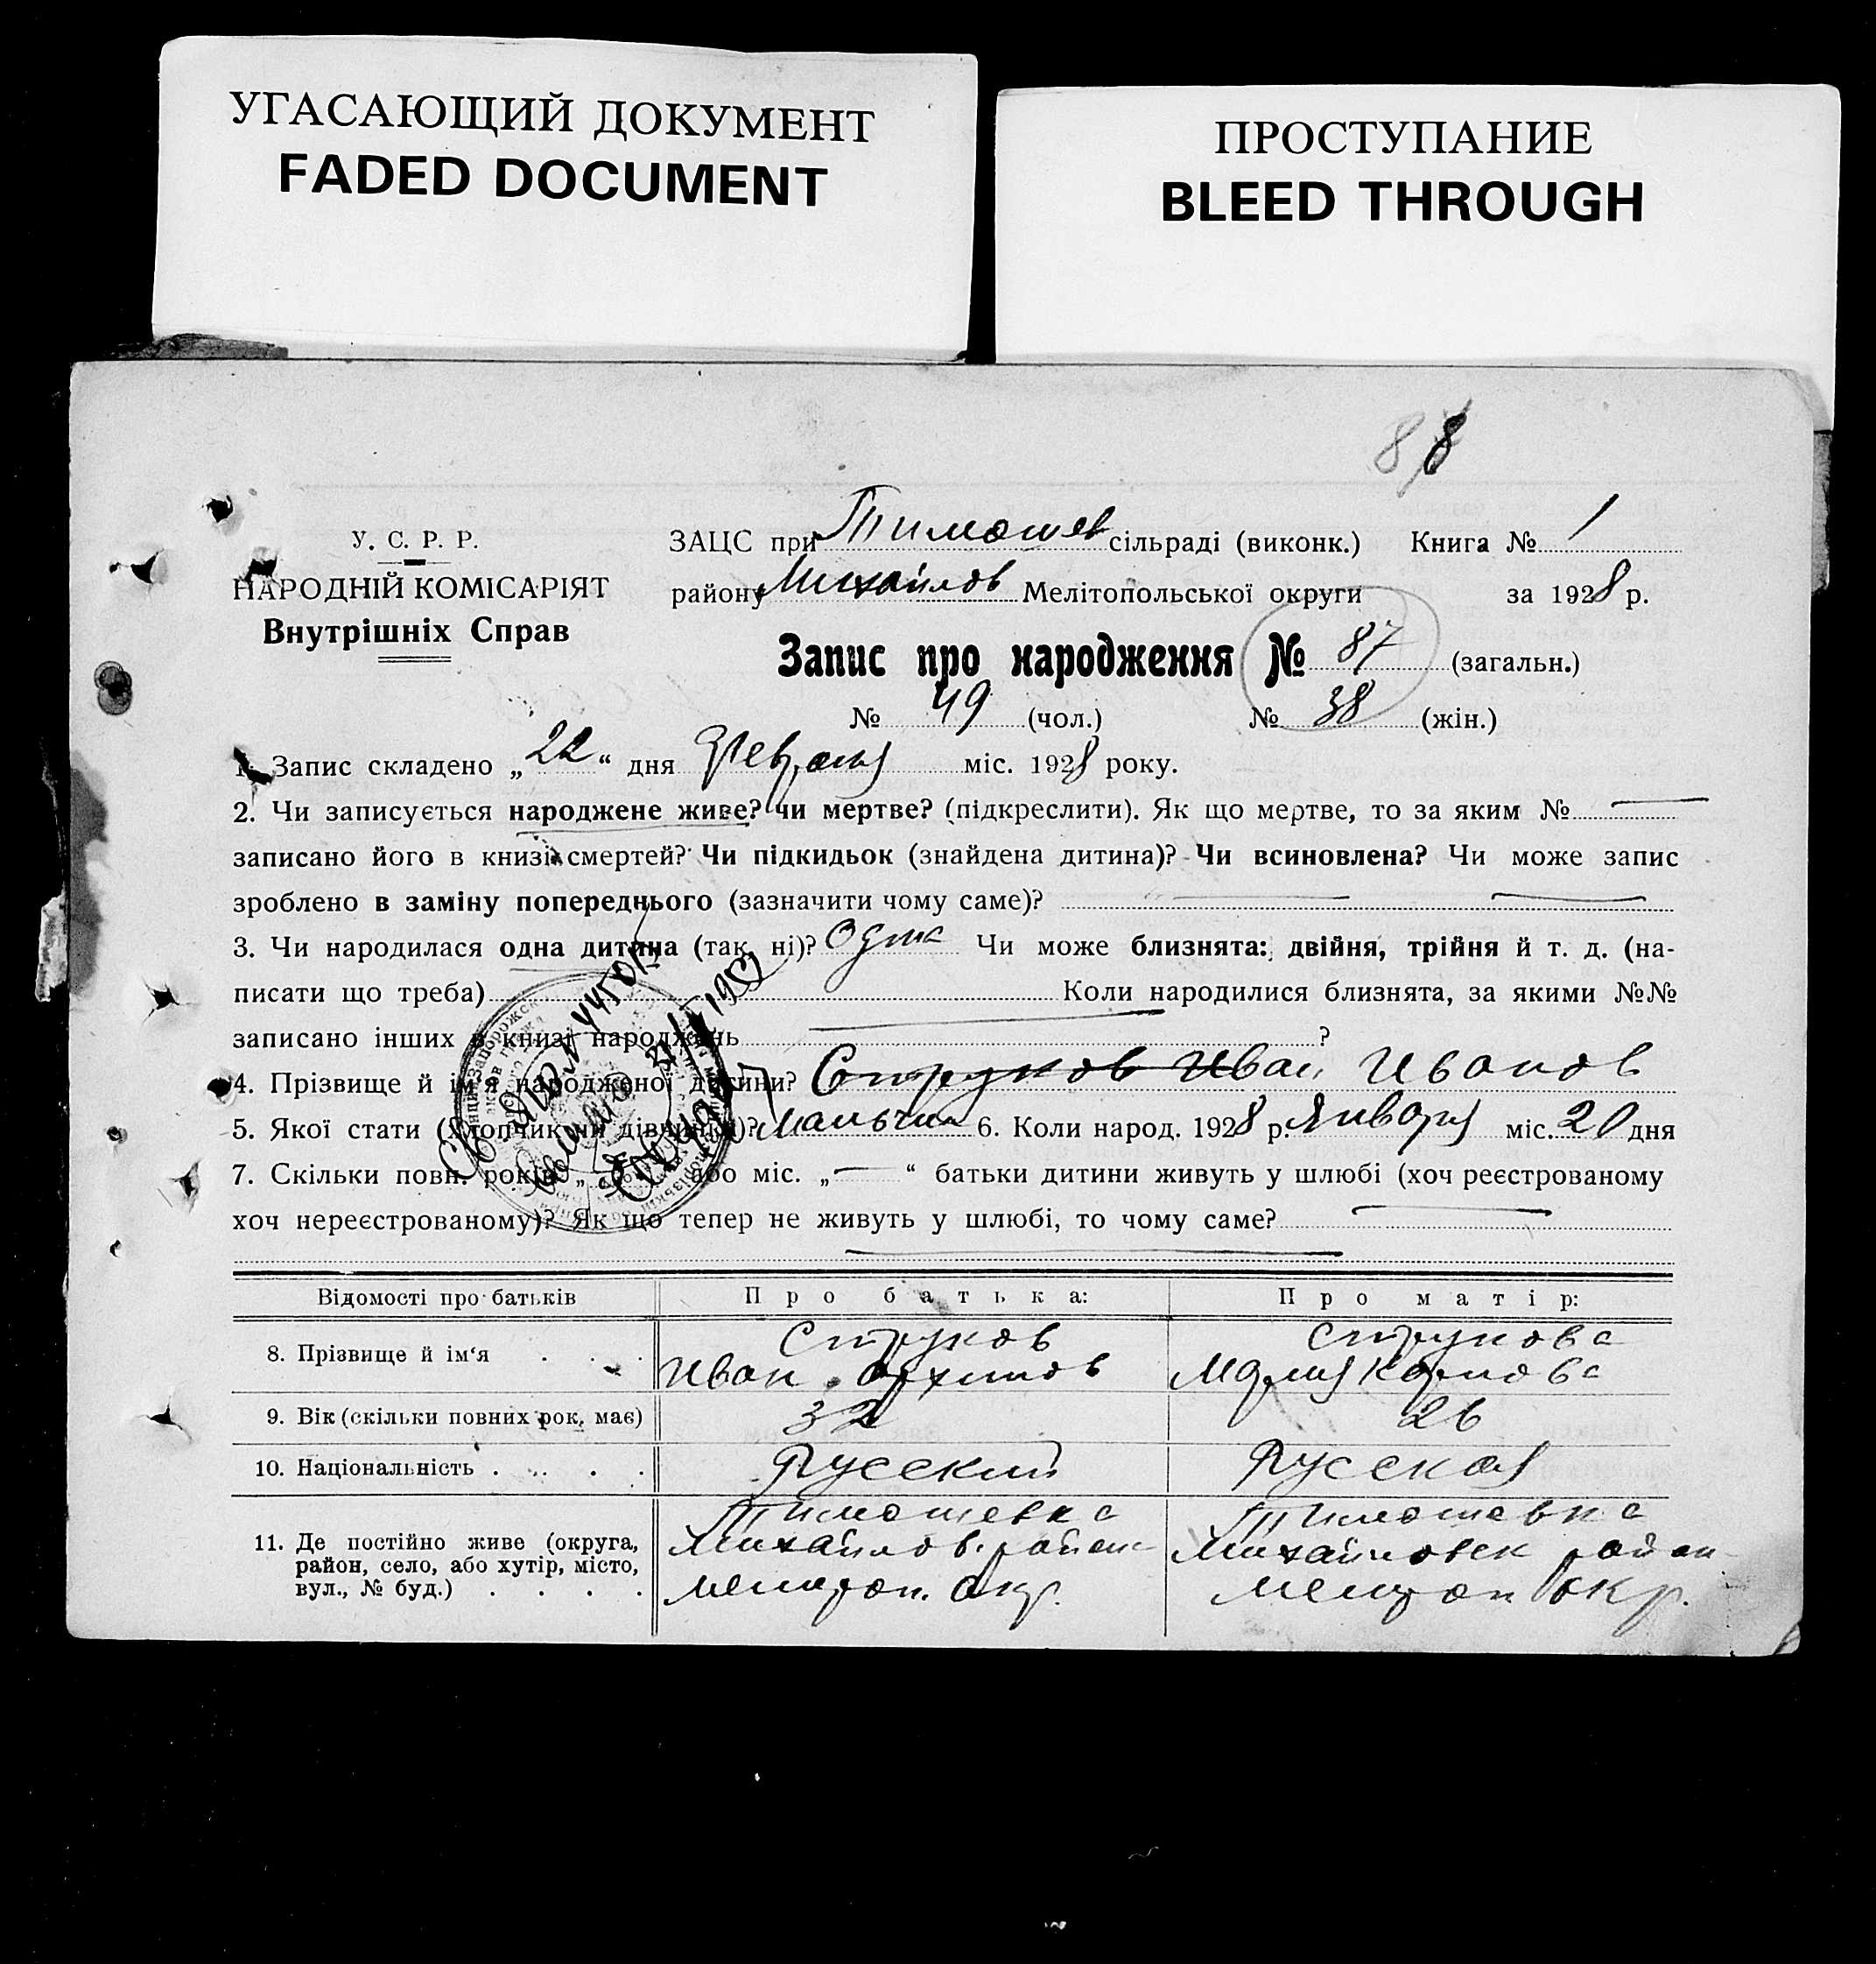 УГАСАЮЩИЙ ДОКУМЕНТ
FADED DOCUMENT
ПРОСТУПАНИЕ
BLEED THROUGH
88
У. С. Р. Р.
НАРОДНІЙ КОМІСАРІЯТ
Внутрішніх Справ
ЗАЦС при Тимошев сільраді (виконк.) Книга № 1
району Михайлов Мелітопольської округи за 1928 р.
Запис про народження № 87 (загальн.)
№ 49 (чол.) № 38 (жін.)
1. Запис складено „22“ дня Февраля міс. 1928 року.
2. Чи записується народжене живе? чи мертве? (підкреслити). Як що мертве, то за яким № —
записано його в книзі смертей? Чи підкидьок (знайдена дитина)? Чи всиновлена? Чи може запис
зроблено в заміну попереднього (зазначити чому саме)? — —
3. Чи народилася одна дитина (так, ні)? Одна Чи може близнята: двійня, трійня й т. д. (на-
писати що треба) Коли народилися близнята, за якими №№
записано інших в книзі народжень — ?
4. Прізвище й ім'я народженої дитини? Струков Иван Иванов
5. Якої стати (хлопчик чи дівчинка)? Мальчик 6. Коли народ. 1928 р. Января міс. 20 дня
7. Скільки повн. років „ або міс. „—“ батьки дитини живуть у шлюбі (хоч реєстрованому
хоч нереєстрованому)? Як що тепер не живуть у шлюбі, то чому саме? —
Відомості про батьків Про батька: Про матір:
8. Прізвище й ім‘я Струков Иван Архипов Струкова Мария Карповa
9. Вік (скільки повних рок. має) 32 26
10. Національність Русский Русская
11. Де постійно живе (округа, район, село, або хутір, місто, вул., № буд.) Тимошевка Михайлов. район Мелитоп. Окр. Тимошевка Михайловск район Мелитоп Окр.